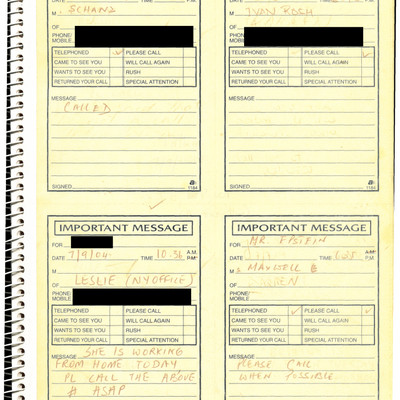 M SCHANZ
OF
PHONE/
MOBILE
TELEPHONED PLEASE CALL
CAME TO SEE YOU WILL CALL AGAIN
WANTS TO SEE YOU RUSH
RETURNED YOUR CALL SPECIAL ATTENTION
MESSAGE
CALLED
SIGNED
1184
M
OF
PHONE/
MOBILE
TELEPHONED PLEASE CALL
CAME TO SEE YOU WILL CALL AGAIN
WANTS TO SEE YOU RUSH
RETURNED YOUR CALL SPECIAL ATTENTION
MESSAGE
SIGNED
1184
IMPORTANT MESSAGE
FOR
DATE 7/9/04 TIME 10.36 A.M. P.M.
M LESLIE (NY OFFICE)
OF
PHONE/
MOBILE
TELEPHONED PLEASE CALL
CAME TO SEE YOU WILL CALL AGAIN
WANTS TO SEE YOU RUSH
RETURNED YOUR CALL SPECIAL ATTENTION
MESSAGE SHE IS WORKING
FROM HOME TODAY
PL CALL THE ABOVE
# ASAP
IMPORTANT MESSAGE
FOR MR. EPSTEIN
DATE TIME A.M. P.M.
M MAXWELL &
OF
PHONE/
MOBILE
TELEPHONED PLEASE CALL
CAME TO SEE YOU WILL CALL AGAIN
WANTS TO SEE YOU RUSH
RETURNED YOUR CALL SPECIAL ATTENTION
MESSAGE
PLEASE CALL
WHEN POSSIBLE